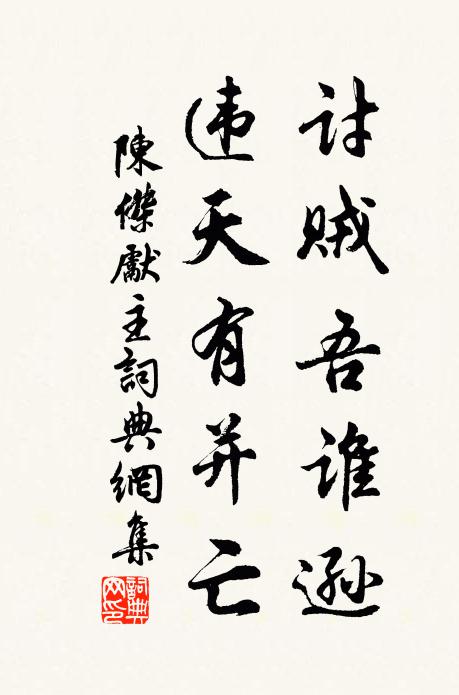 讨贼吾谁逊
违天有并亡
陳傑獻主詞典網集
詞典网印